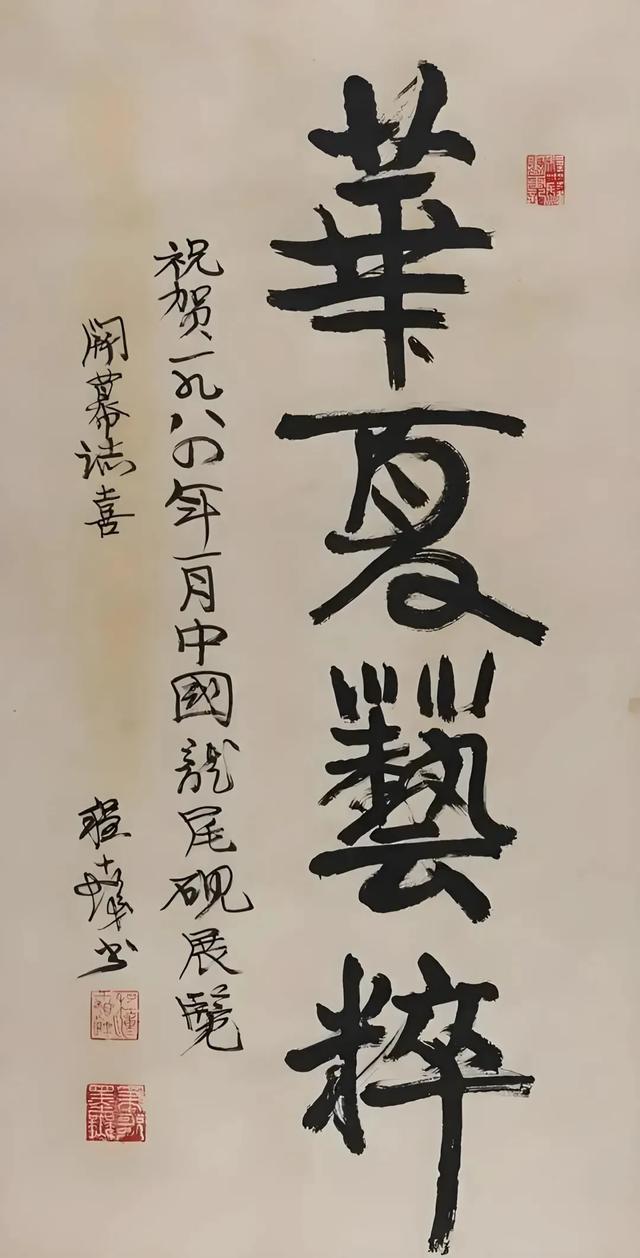 華夏藝粹
祝贺一九八四年一月中國龍尾砚展覽
開幕誌喜
程十髮书